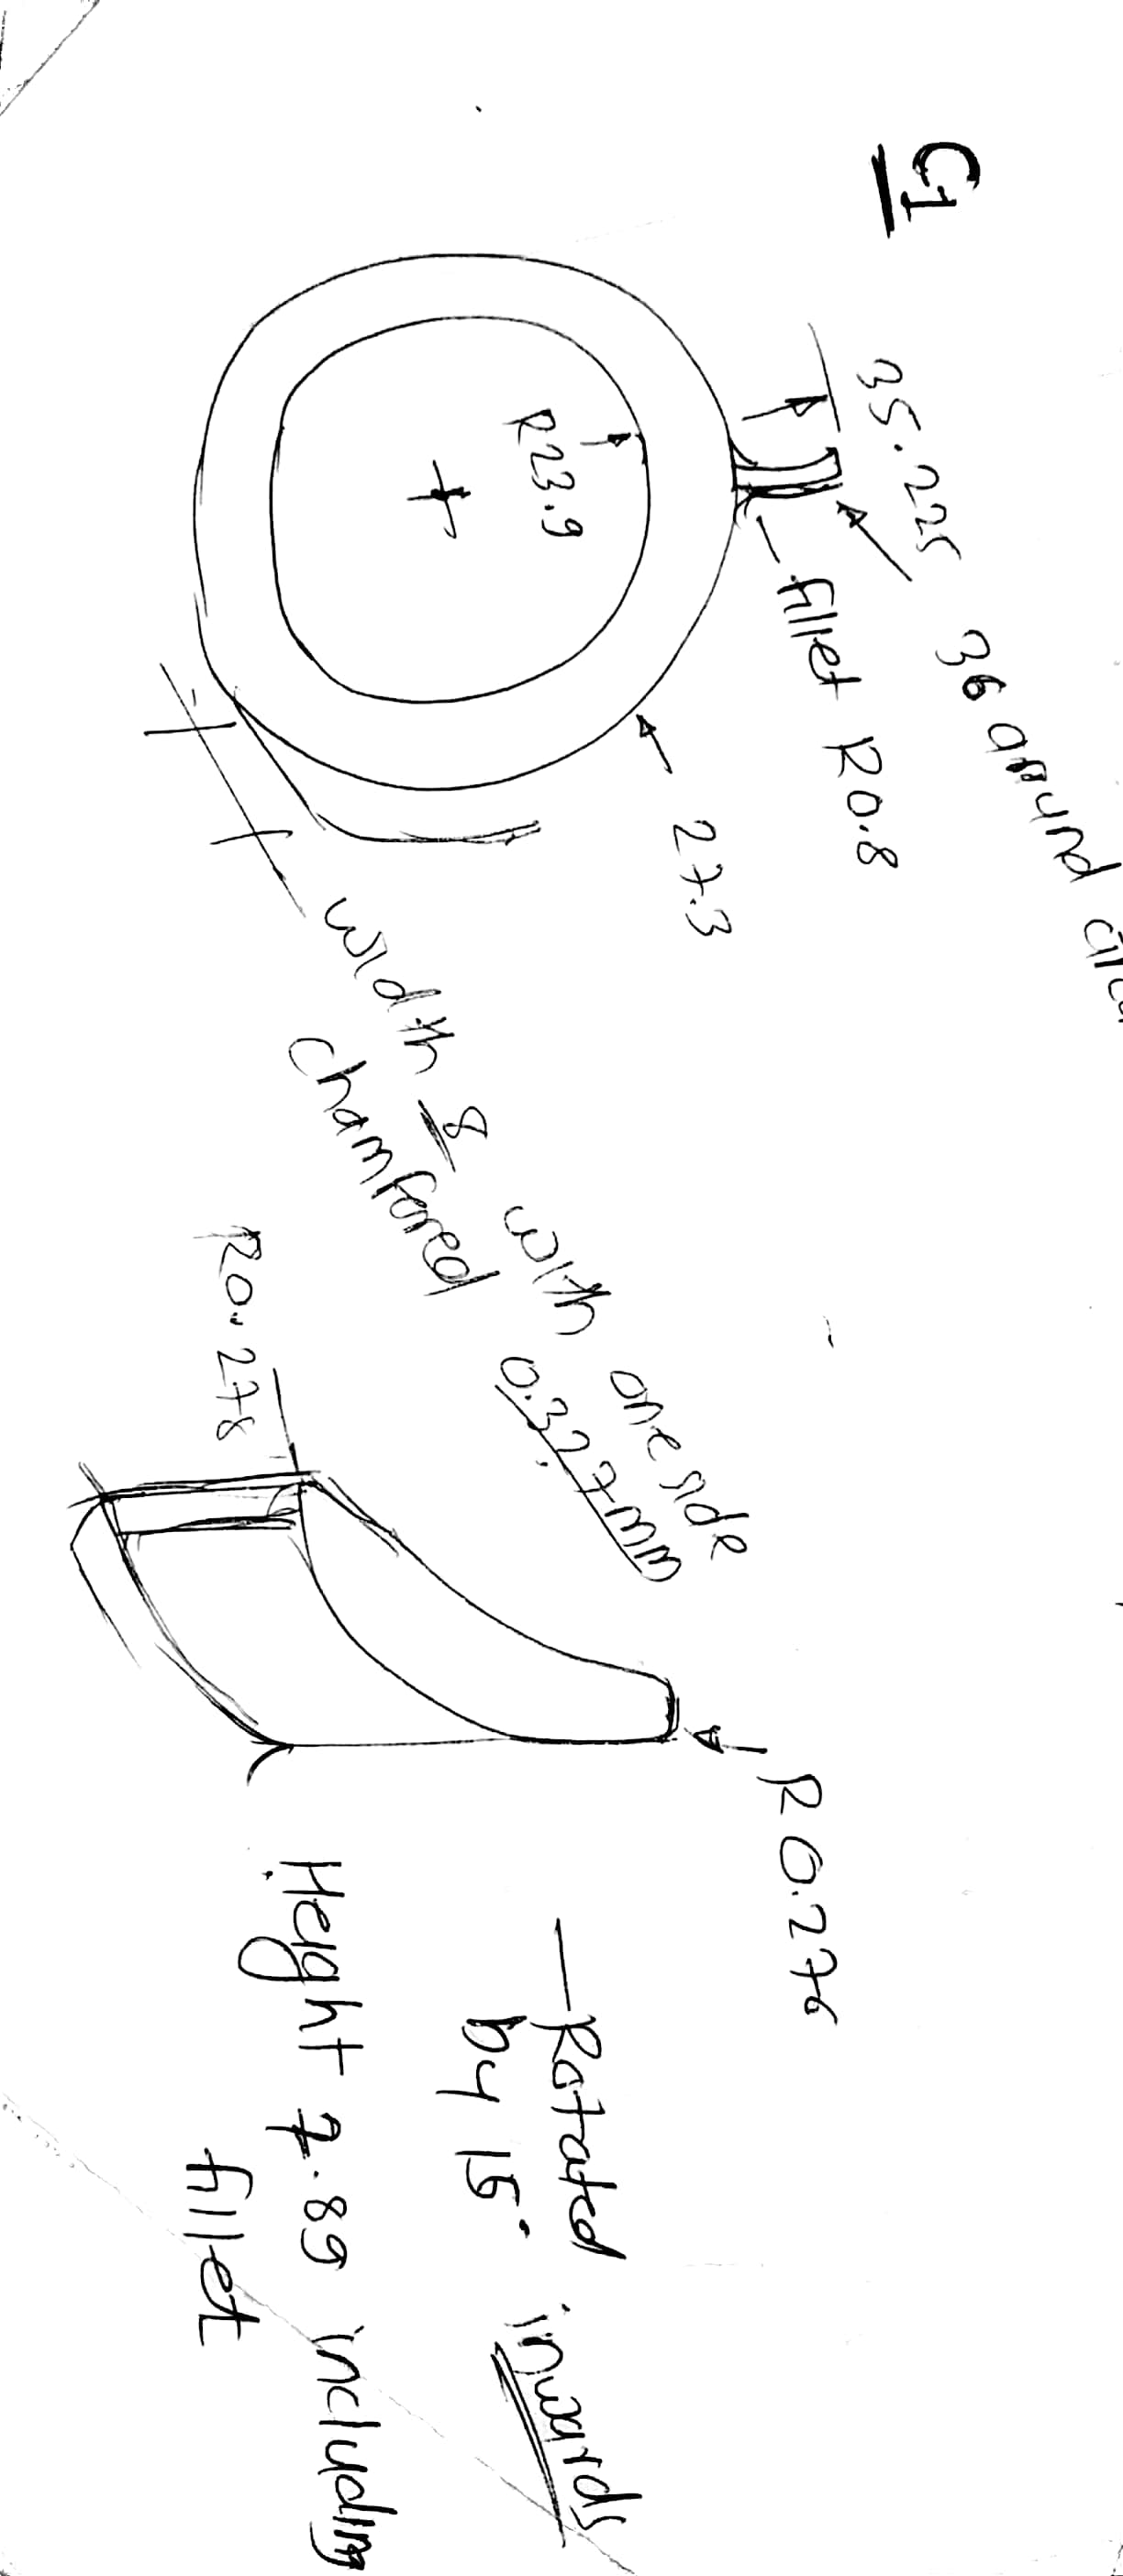 C1
35.225
36 around
R23.9
fillet R0.8
27.3
width 8 with one side
chamfered 0.327mm
R0.278
R0.276
Rotated inwards
by 15°
Height 7.89 including
fillet